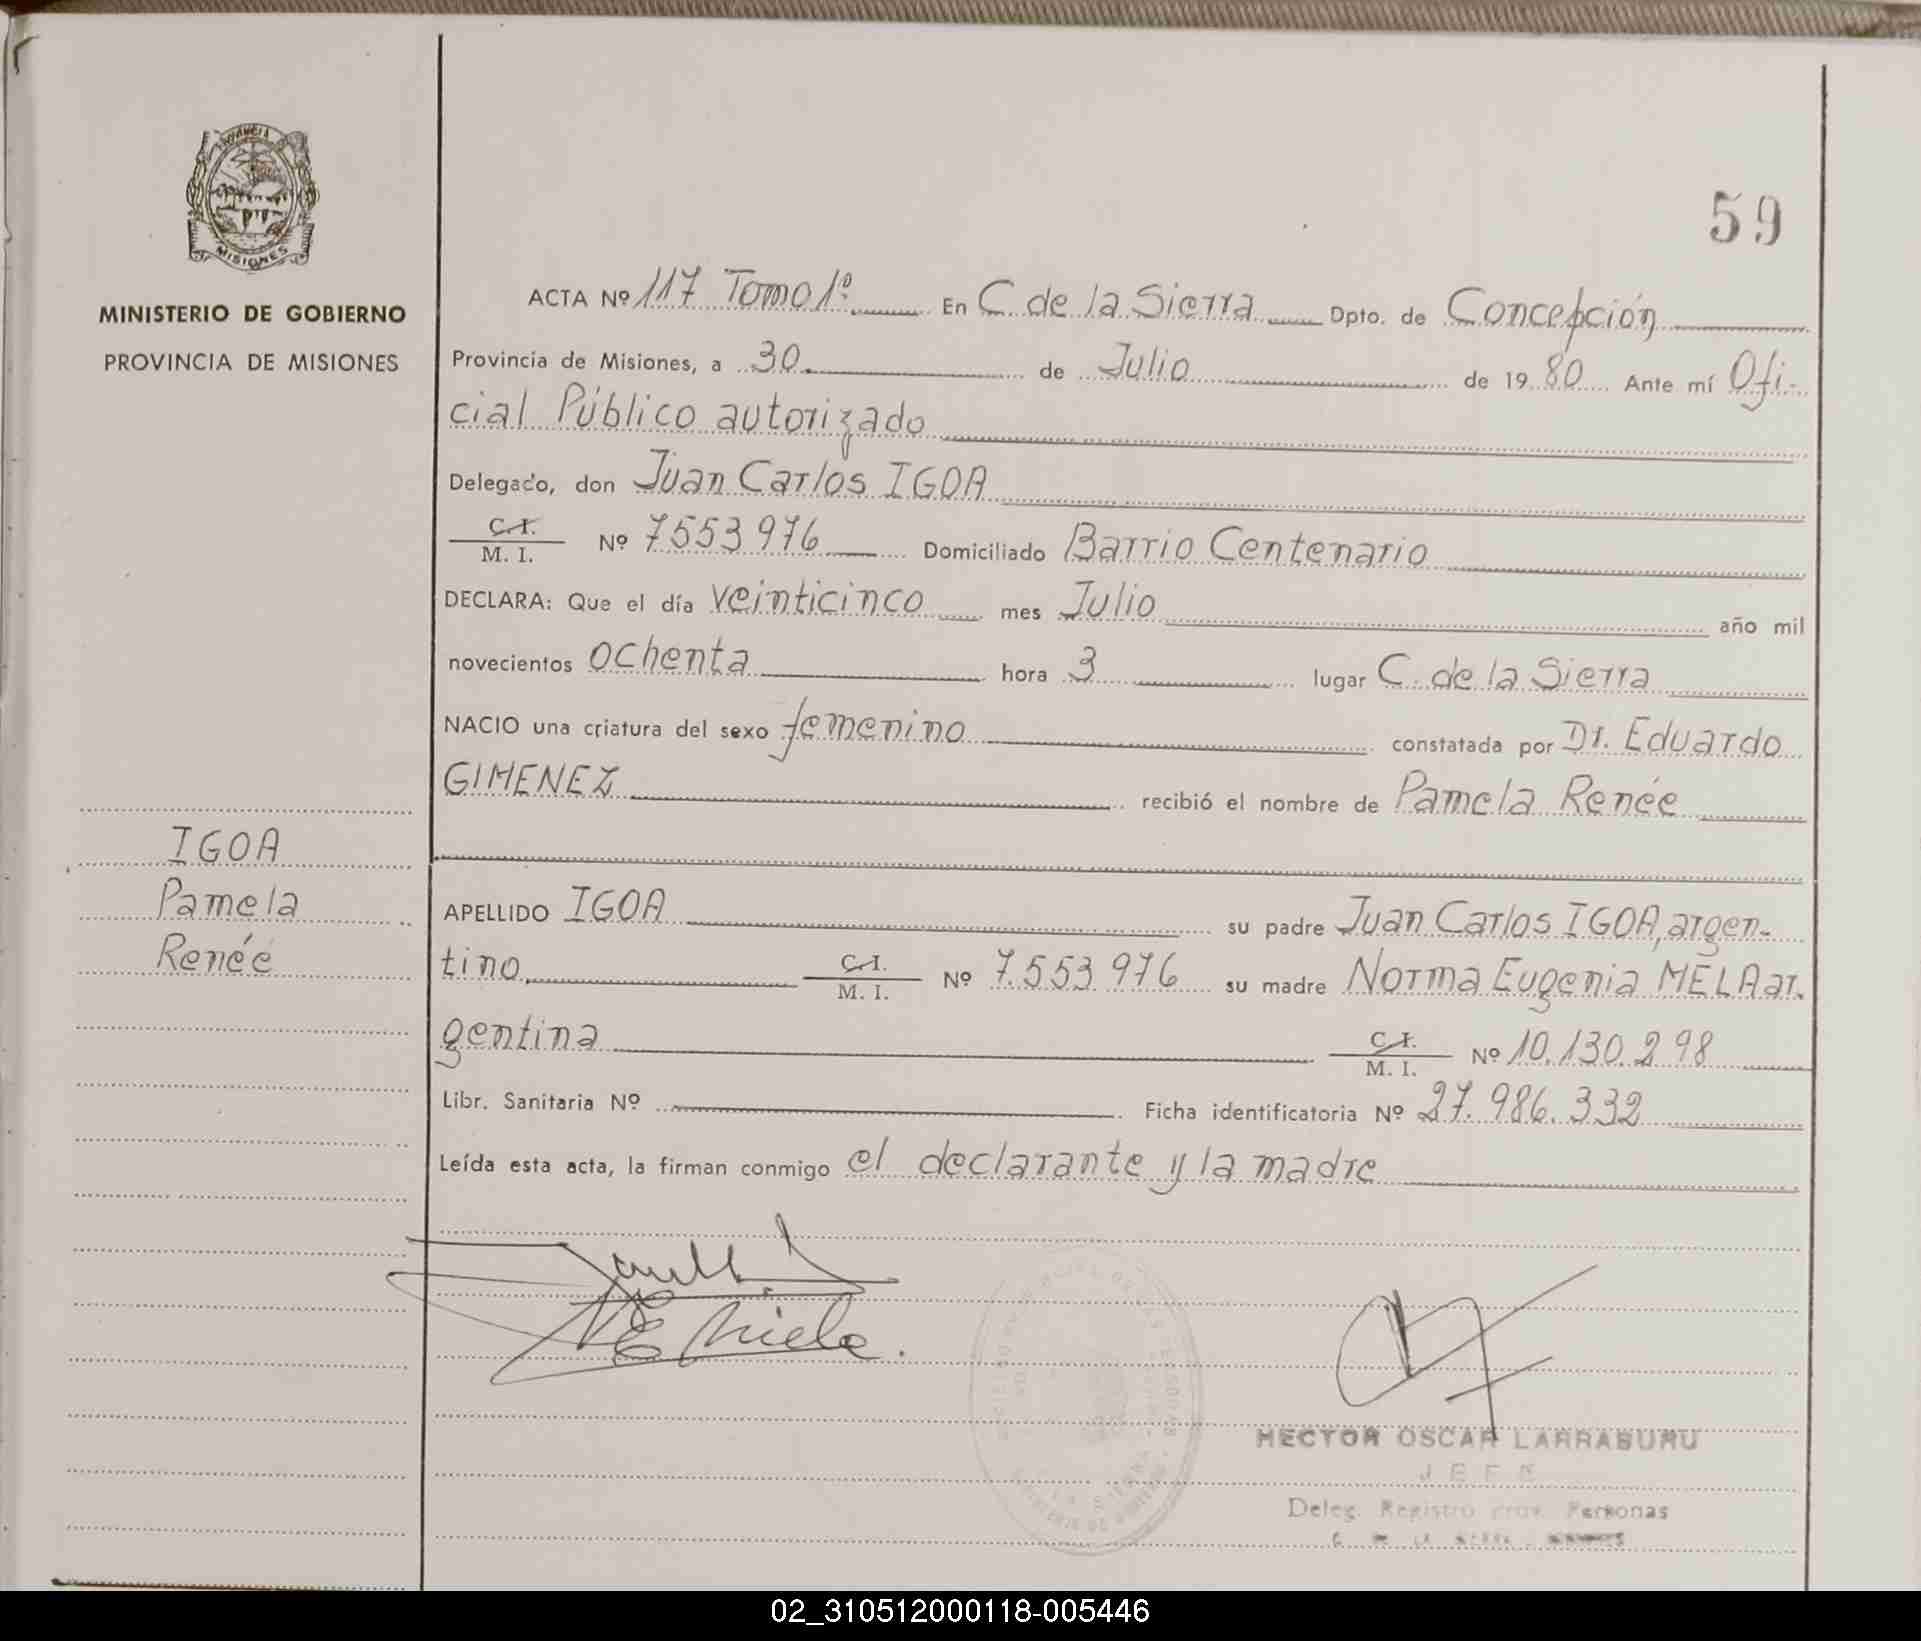 PROVINCIA
MISIONES
MINISTERIO DE GOBIERNO
PROVINCIA DE MISIONES
59
ACTA Nº 117 Tomo 1º En C. de la Sierra Dpto. de Concepción
Provincia de Misiones, a 30 de Julio de 1980 Ante mí Ofi-
cial Público autorizado
Delegado, don Juan Carlos IGOA
C. I.
M. I. Nº 7553976 Domiciliado Barrio Centenario
DECLARA: Que el día veinticinco mes Julio año mil
novecientos ochenta hora 3 lugar C. de la Sierra
NACIO una criatura del sexo femenino constatada por Dr. Eduardo
GIMENEZ recibió el nombre de Pamela Renée
IGOA
Pamela
Renée
APELLIDO IGOA su padre Juan Carlos IGOA, argen-
tino, C. I.
M. I. Nº 7.553.976 su madre Norma Eugenia MELA ar-
gentina C. I.
M. I. Nº 10.130.298
Libr. Sanitaria Nº Ficha identificatoria Nº 27.986.332
Leída esta acta, la firman conmigo el declarante y la madre
HECTOR OSCAR LARRABURU
JEFE
Deleg. Registro Prov. Personas
02_310512000118-005446